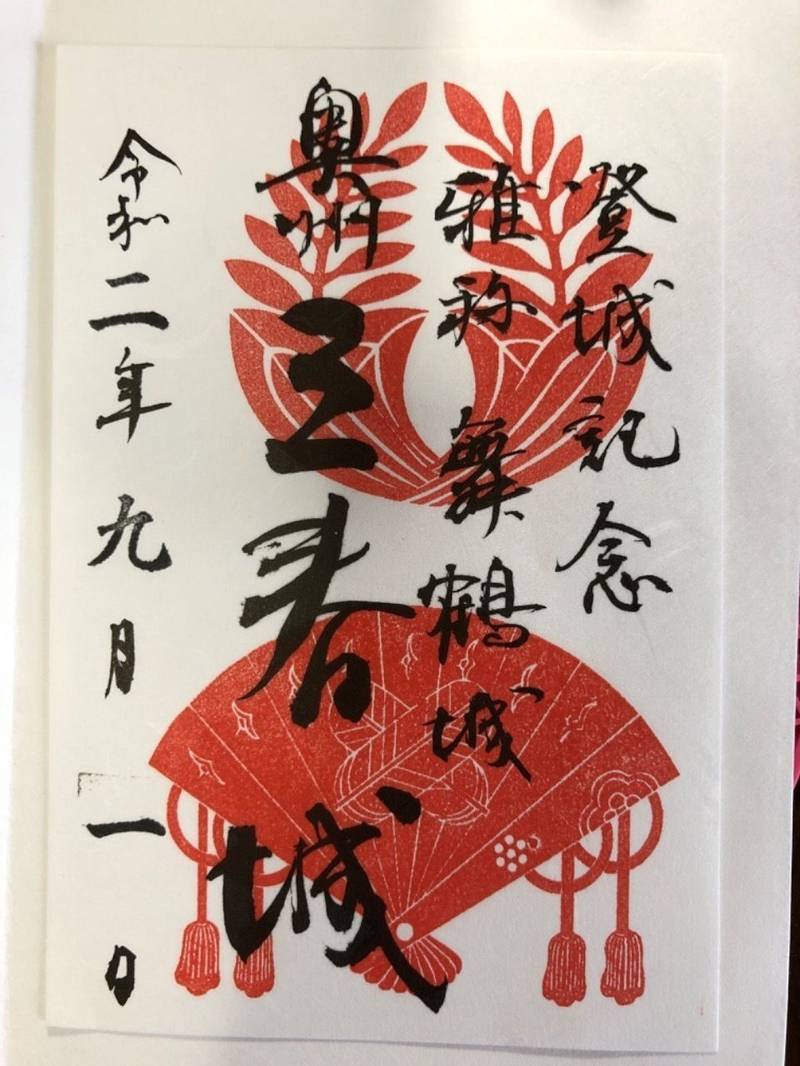 登城記念
雅称 舞鶴城
奥州三春城
令和二年九月一日